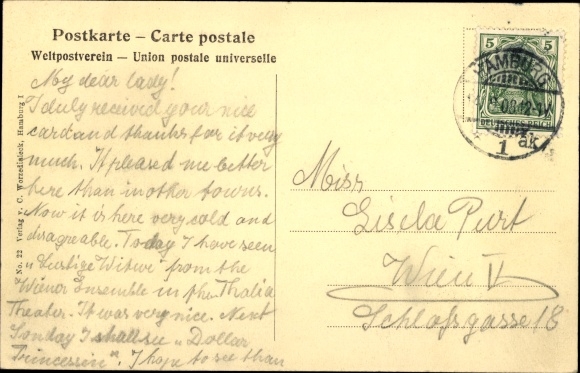 Postkarte – Carte postale
Weltpostverein – Union postale universelle
My dear lady!
I duly received your nice
card and thanks for it very
much. It pleased me better
here than in other towns.
Now it is here very cold and
disagreable. Today I have seen
„Lustige Witwe" from the
Wiener Ensemble in the Thalia
Theater. It was very nice. Next
Sonday I shall see „Dollar
Princessin". I hope to see than
No. 22 Verlag v. C. Worzedialeck, Hamburg I
5 5
HAMBURG
DEUTSCHES REICH
1
Miss
Gisela Purt
Wien V
Schloßgasse 18